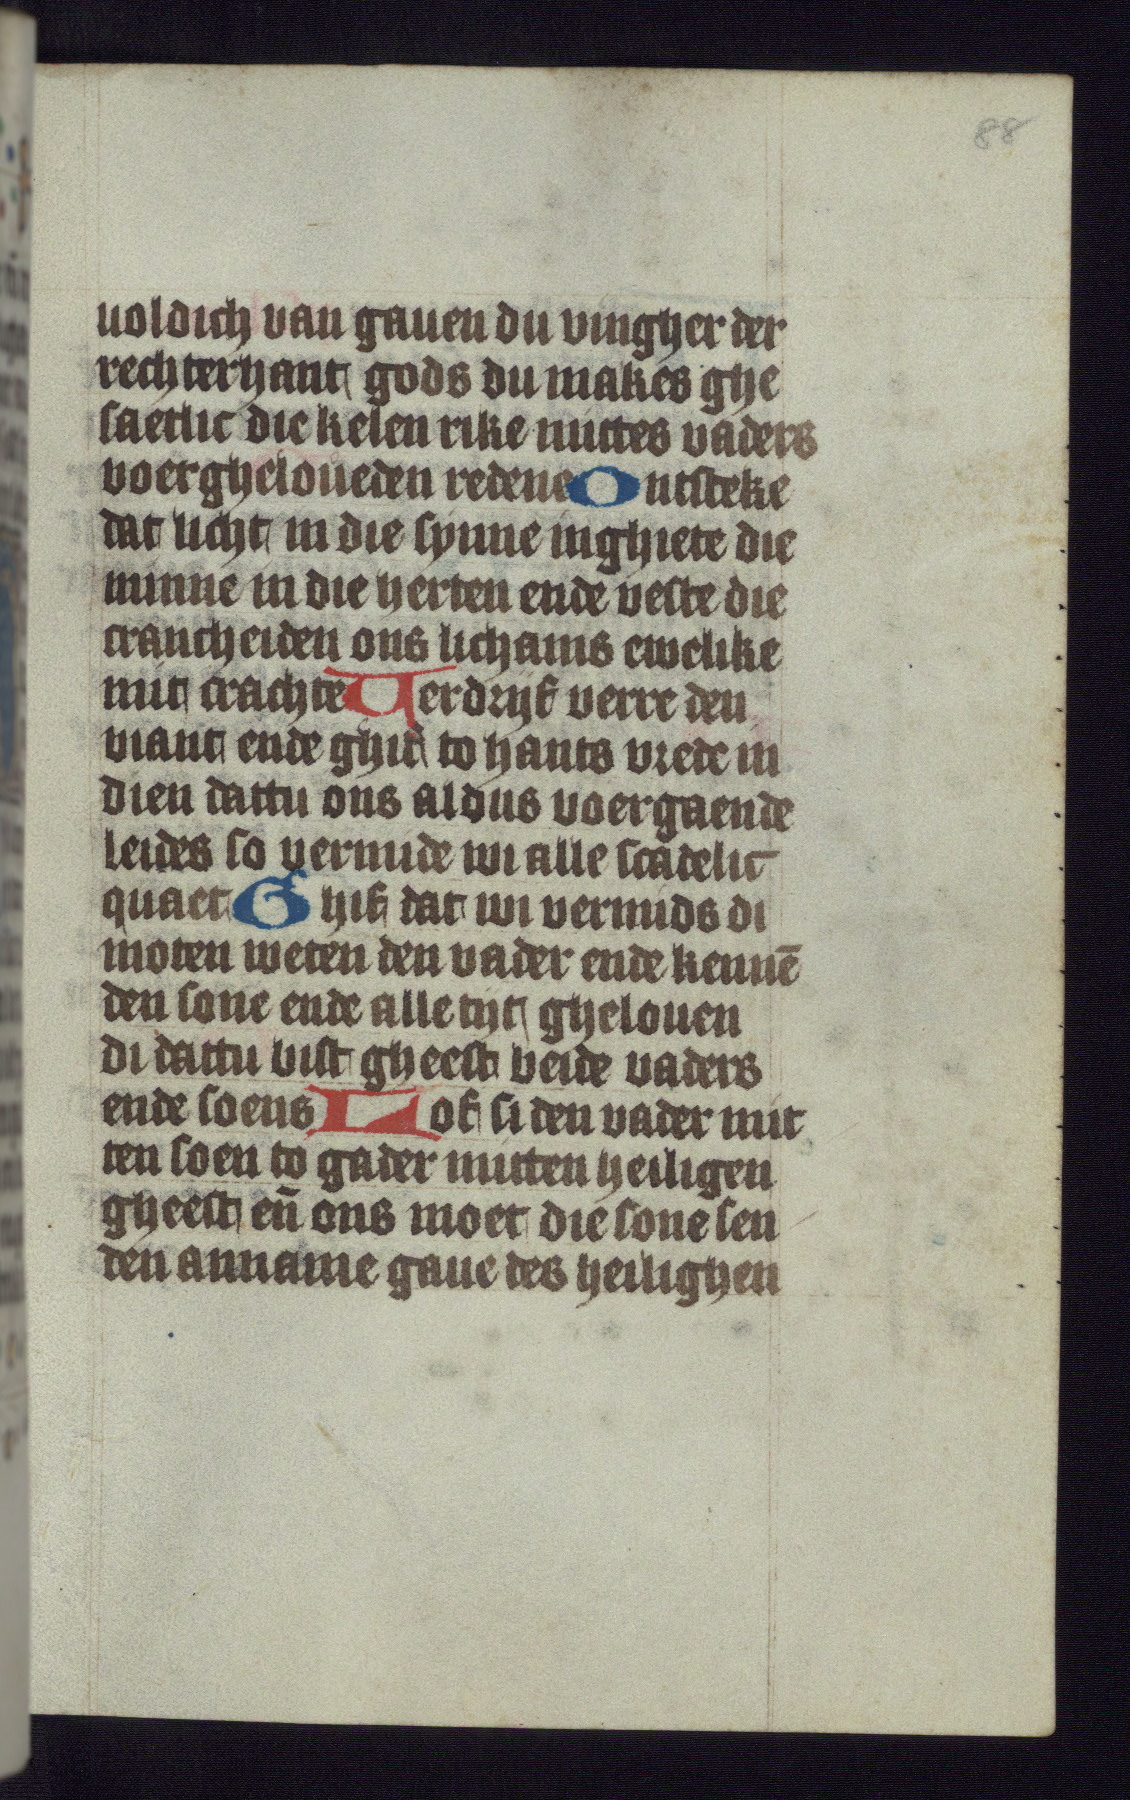 88
uoldich van gauen du vingher der
rechterhant gods du makes ghe
saetlic die kelen rike mittes vaders
voergheloueden redene Ontsteke
dat licht in die synne inghiete die
minne in die herten ende veste die
crancheiden ons lichams ewelike
mit crachte Verdryf verre den
viant ende ghif to hants vrede in
dien dattu ons aldus voergaende
leides so vermide wi alle scadelic
quaet Ghif dat wi vermids di
moten weten den vader ende kennē
den sone ende alle tijt ghelouen
di dattu bist gheest beide vaders
ende soens Lof si den vader mit
ten soen to gader mitten heiligen
gheest en̄ ons moet die sone sen
den anname gaue des heilighen